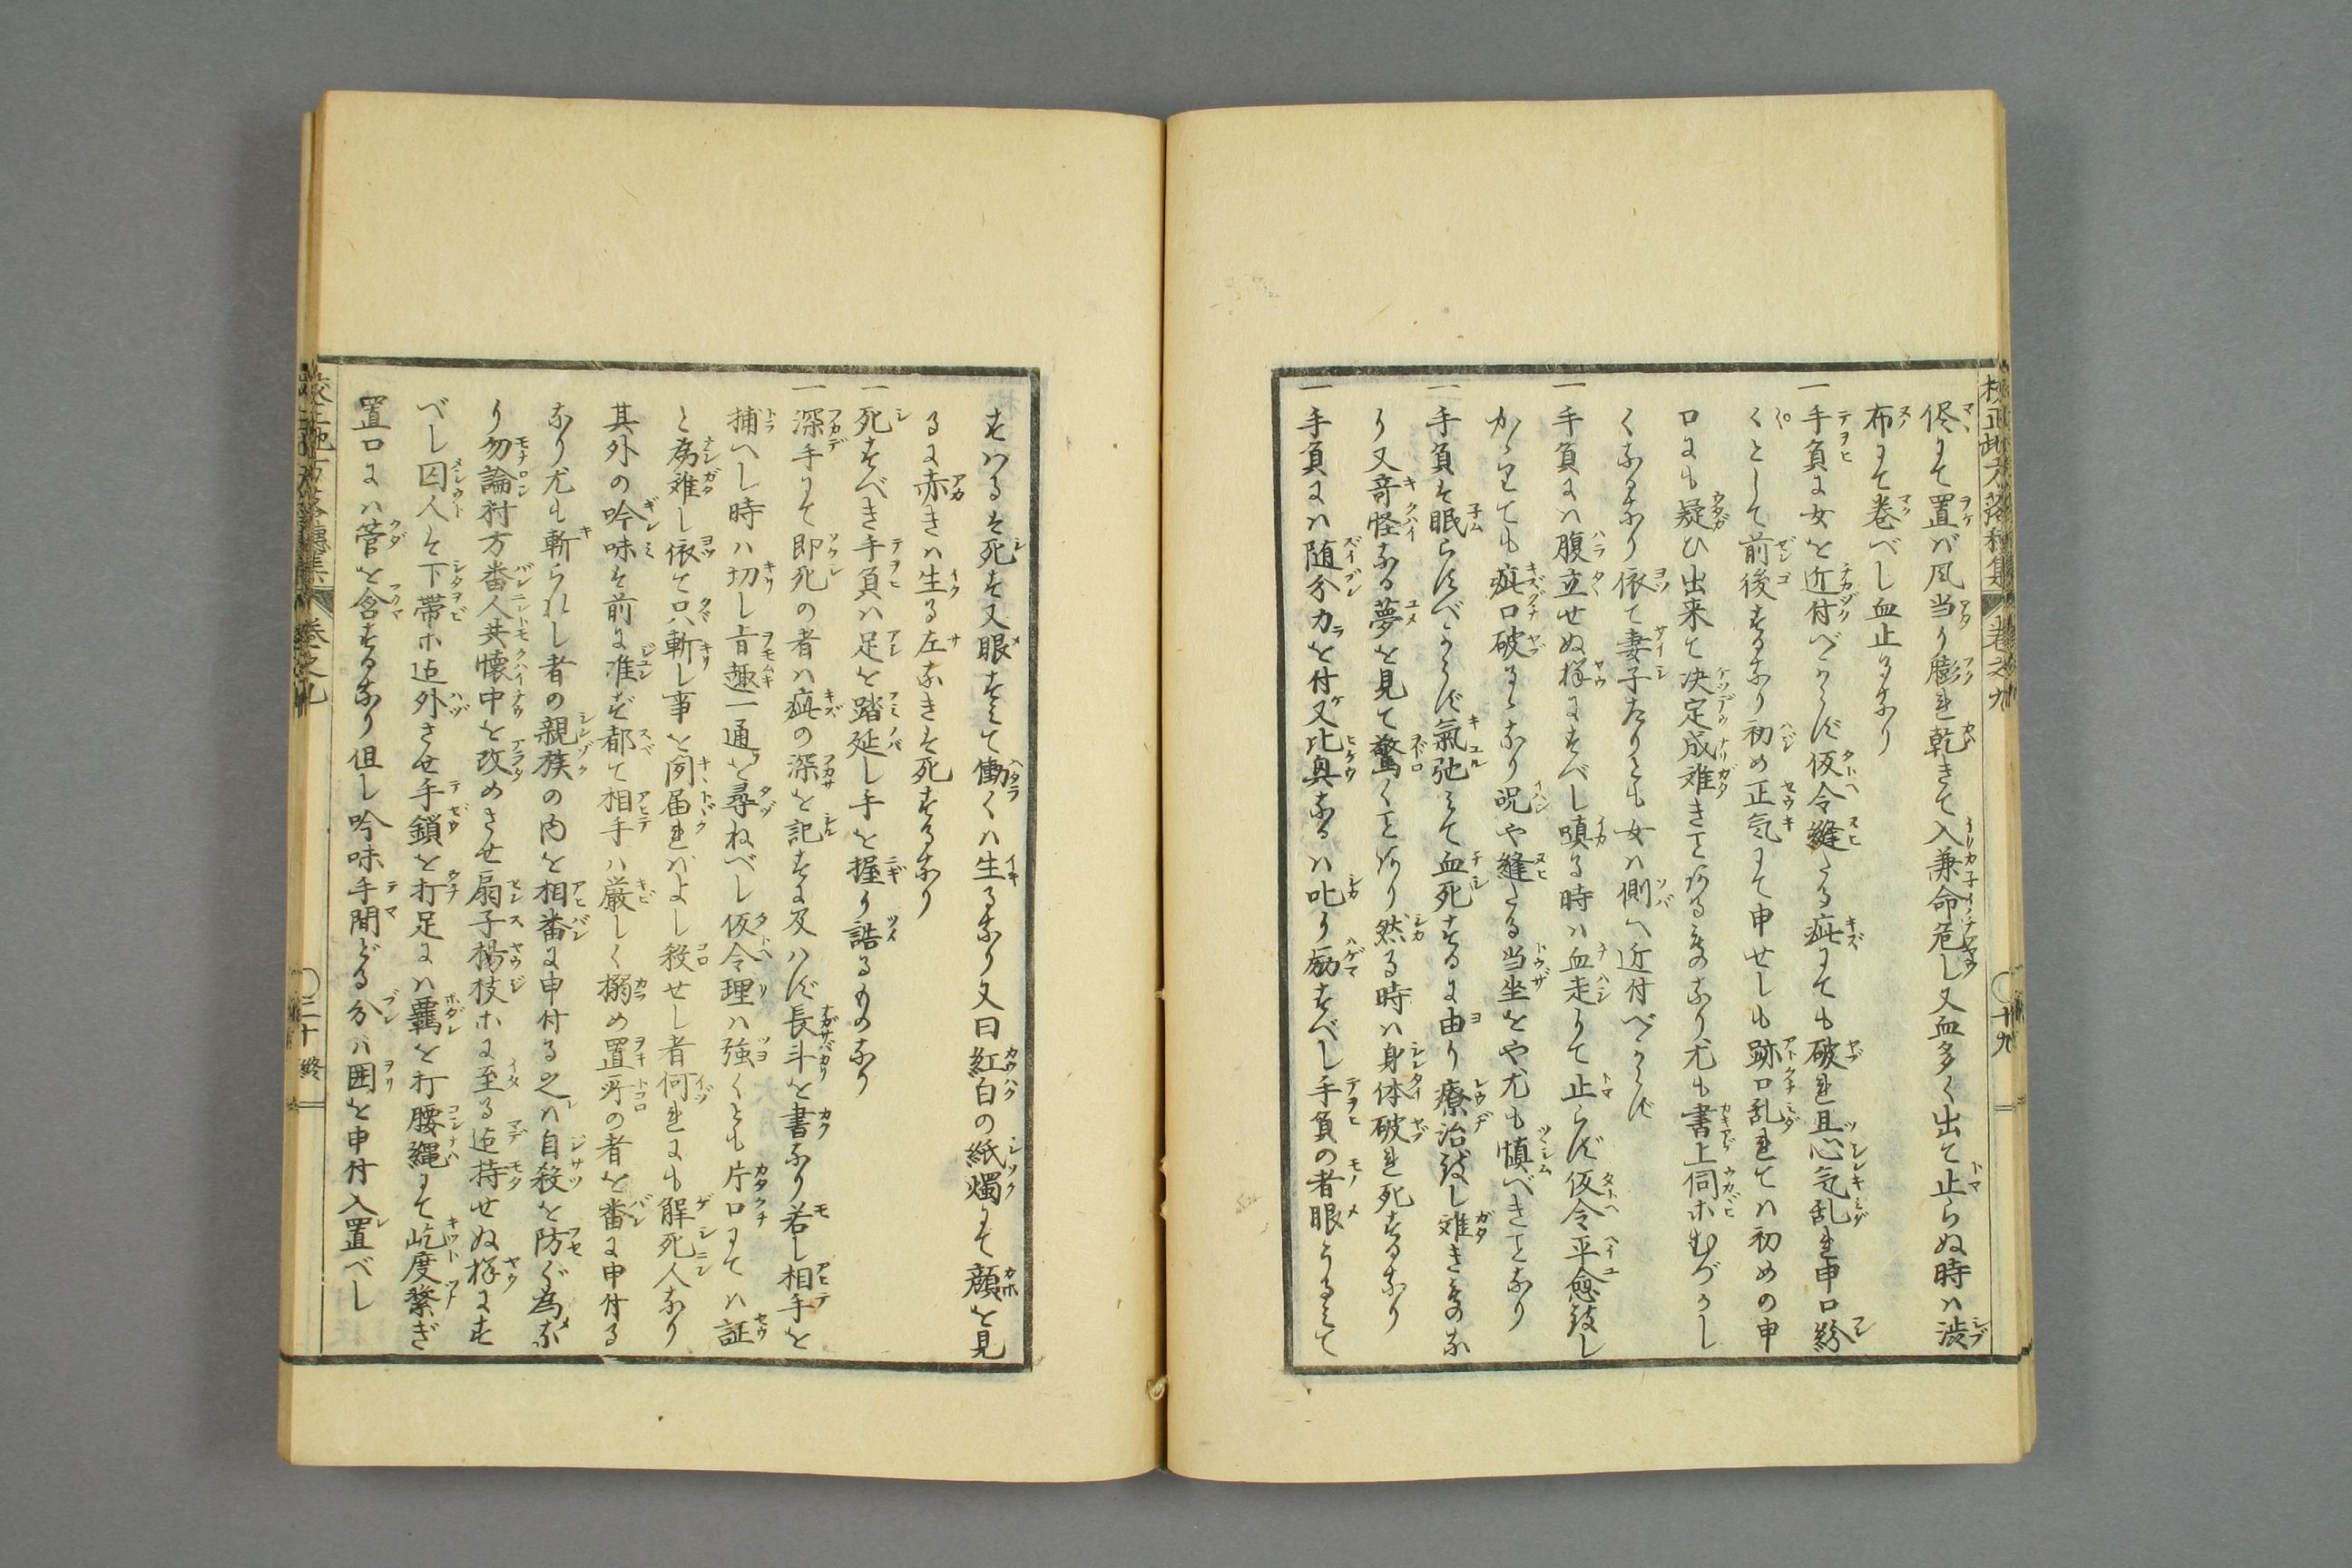 校正地方落穂集 巻之九 ○十九
侭にて置バ風当り膨れ乾きて入兼命危し又血多く出て止らぬ時ハ渋
布にて巻べし血止るなり
一手負に女を近付べからず仮令縫たる疵にても破れ且心気乱れ申口紛
くとして前後するなり初め正気にて申せしも跡口乱れてハ初めの申
口にも疑ひ出来て决定成難きことあるものなり尤も書上伺ホむづかし
くなるなり依て妻子たりとも女ハ側へ近付べからず
一手負にハ腹立せぬ様にすべし嗔る時ハ血走りて止らず仮令平愈致し
かゝりても疵口破るゝなり况や縫たる当坐をや尤も慎べきことなり
一手負を眠らすべからず氣弛ミて血死するに由り療治致し難きものな
り又竒怪なる夢を見て驚くことあり然る時ハ身体破れ死するなり
一手負にハ随分力を付又比興なるハ叱り励すべし手負の者眼うるミて
すハるを死を又眼すミて働くハ生るなり又曰紅白の紙燭にて顔を見
るに赤きハ生る左なきを死するなり
一死すべき手負ハ足を踏延し手を握り誥るものなり
一深手にて即死の者ハ疵の深を記すに及ハず長斗を書なり若し相手を
捕へし時ハ切し旨趣一通を尋ねべし仮令理ハ強くとも片口にてハ証
と為難し依て只斬し事を聞届れバよし殺せし者何れにも解死人なり
其外の吟味を前に准ず都て相手ハ厳しく搦め置所の者を番に申付る
なり尤も斬られし者の親族の内を相番に申付る之ハ自殺を防ぐ為な
り勿論村方番人共懐中を改めさせ扇子楊枝ホに至る迠持せぬ様にす
べし囚人を下帯ホ迠外させ手鎖を打足にハ覊を打腰縄にて屹度繋ぎ
置口にハ管を含するなり但し吟味手間どる分ハ囲を申付入置べし
校正地方落穂集 巻之九 ○二十終